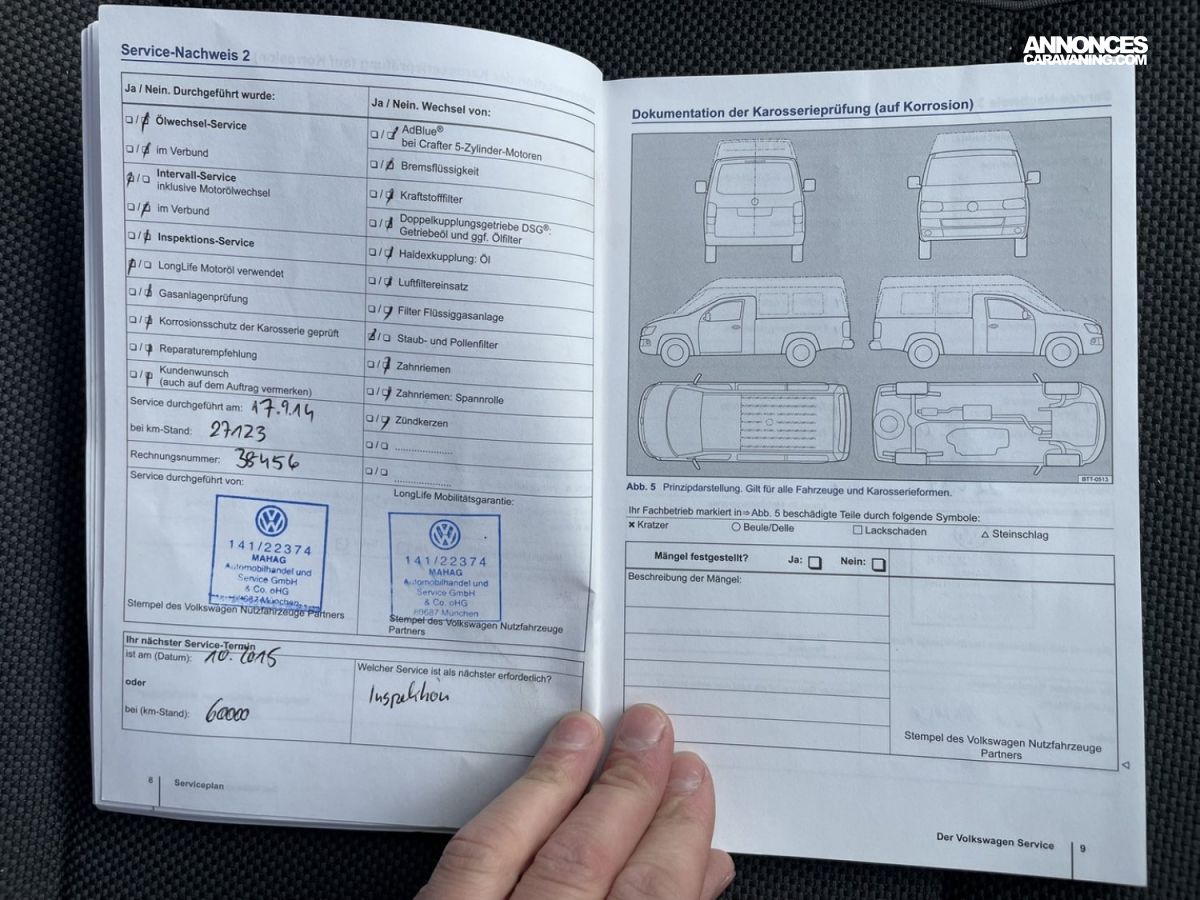 ANNONCES
CARAVANING.COM
Service-Nachweis 2
Ja / Nein. Durchgeführt wurde:
Ölwechsel-Service
im Verbund
Intervall-Service
inklusive Motorölwechsel
im Verbund
Inspektions-Service
LongLife Motoröl verwendet
Gasanlagenprüfung
Korrosionsschutz der Karosserie geprüft
Reparaturempfehlung
Kundenwunsch
(auch auf dem Auftrag vermerken)
Service durchgeführt am: 17.9.14
bei km-Stand: 27123
Rechnungsnummer: 38456
Service durchgeführt von:
141/22374
MAHAG
Automobilhandel und
Service GmbH
& Co. oHG
München
Stempel des Volkswagen Nutzfahrzeuge Partners
Ja / Nein. Wechsel von:
AdBlue®
bei Crafter 5-Zylinder-Motoren
Bremsflüssigkeit
Kraftstofffilter
Doppelkupplungsgetriebe DSG®:
Getriebeöl und ggf. Ölfilter
Haldexkupplung: Öl
Luftfiltereinsatz
Filter Flüssiggasanlage
Staub- und Pollenfilter
Zahnriemen
Zahnriemen: Spannrolle
Zündkerzen
LongLife Mobilitätsgarantie:
141/22374
MAHAG
Automobilhandel und
Service GmbH
& Co. oHG
80687 München
Stempel des Volkswagen Nutzfahrzeuge
Partners
Ihr nächster Service-Termin
ist am (Datum): 10.2015
oder
bei (km-Stand): 60000
Welcher Service ist als nächster erforderlich?
Inspektion
8 Serviceplan
Dokumentation der Karosserieprüfung (auf Korrosion)
BTT-0513
Abb. 5 Prinzipdarstellung. Gilt für alle Fahrzeuge und Karosserieformen.
Ihr Fachbetrieb markiert in ⇒ Abb. 5 beschädigte Teile durch folgende Symbole:
× Kratzer ○ Beule/Delle □ Lackschaden △ Steinschlag
Mängel festgestellt? Ja: □ Nein: □
Beschreibung der Mängel:
Stempel des Volkswagen Nutzfahrzeuge
Partners
Der Volkswagen Service 9